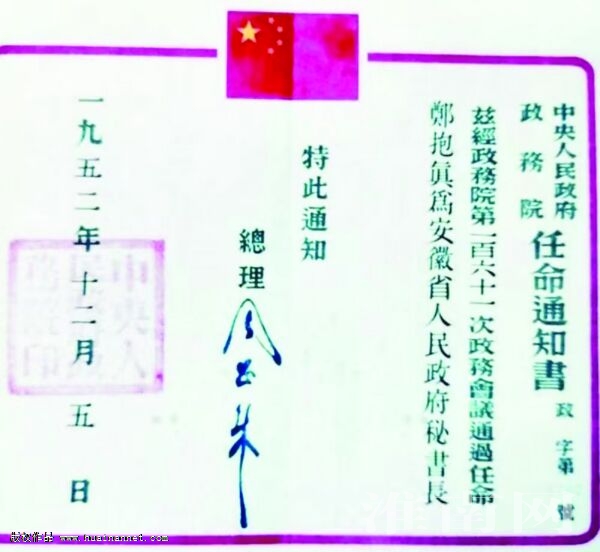 中央人民政府
政務院
任命通知書
政 字第 號
茲經政務院第一百六十一次政務會議通過任命
鄭抱眞爲安徽省人民政府秘書長
特此通知
總理 周恩来
一九五二年十二月五日
中央人民政府政務院印
版权作品 www.huainannet.com